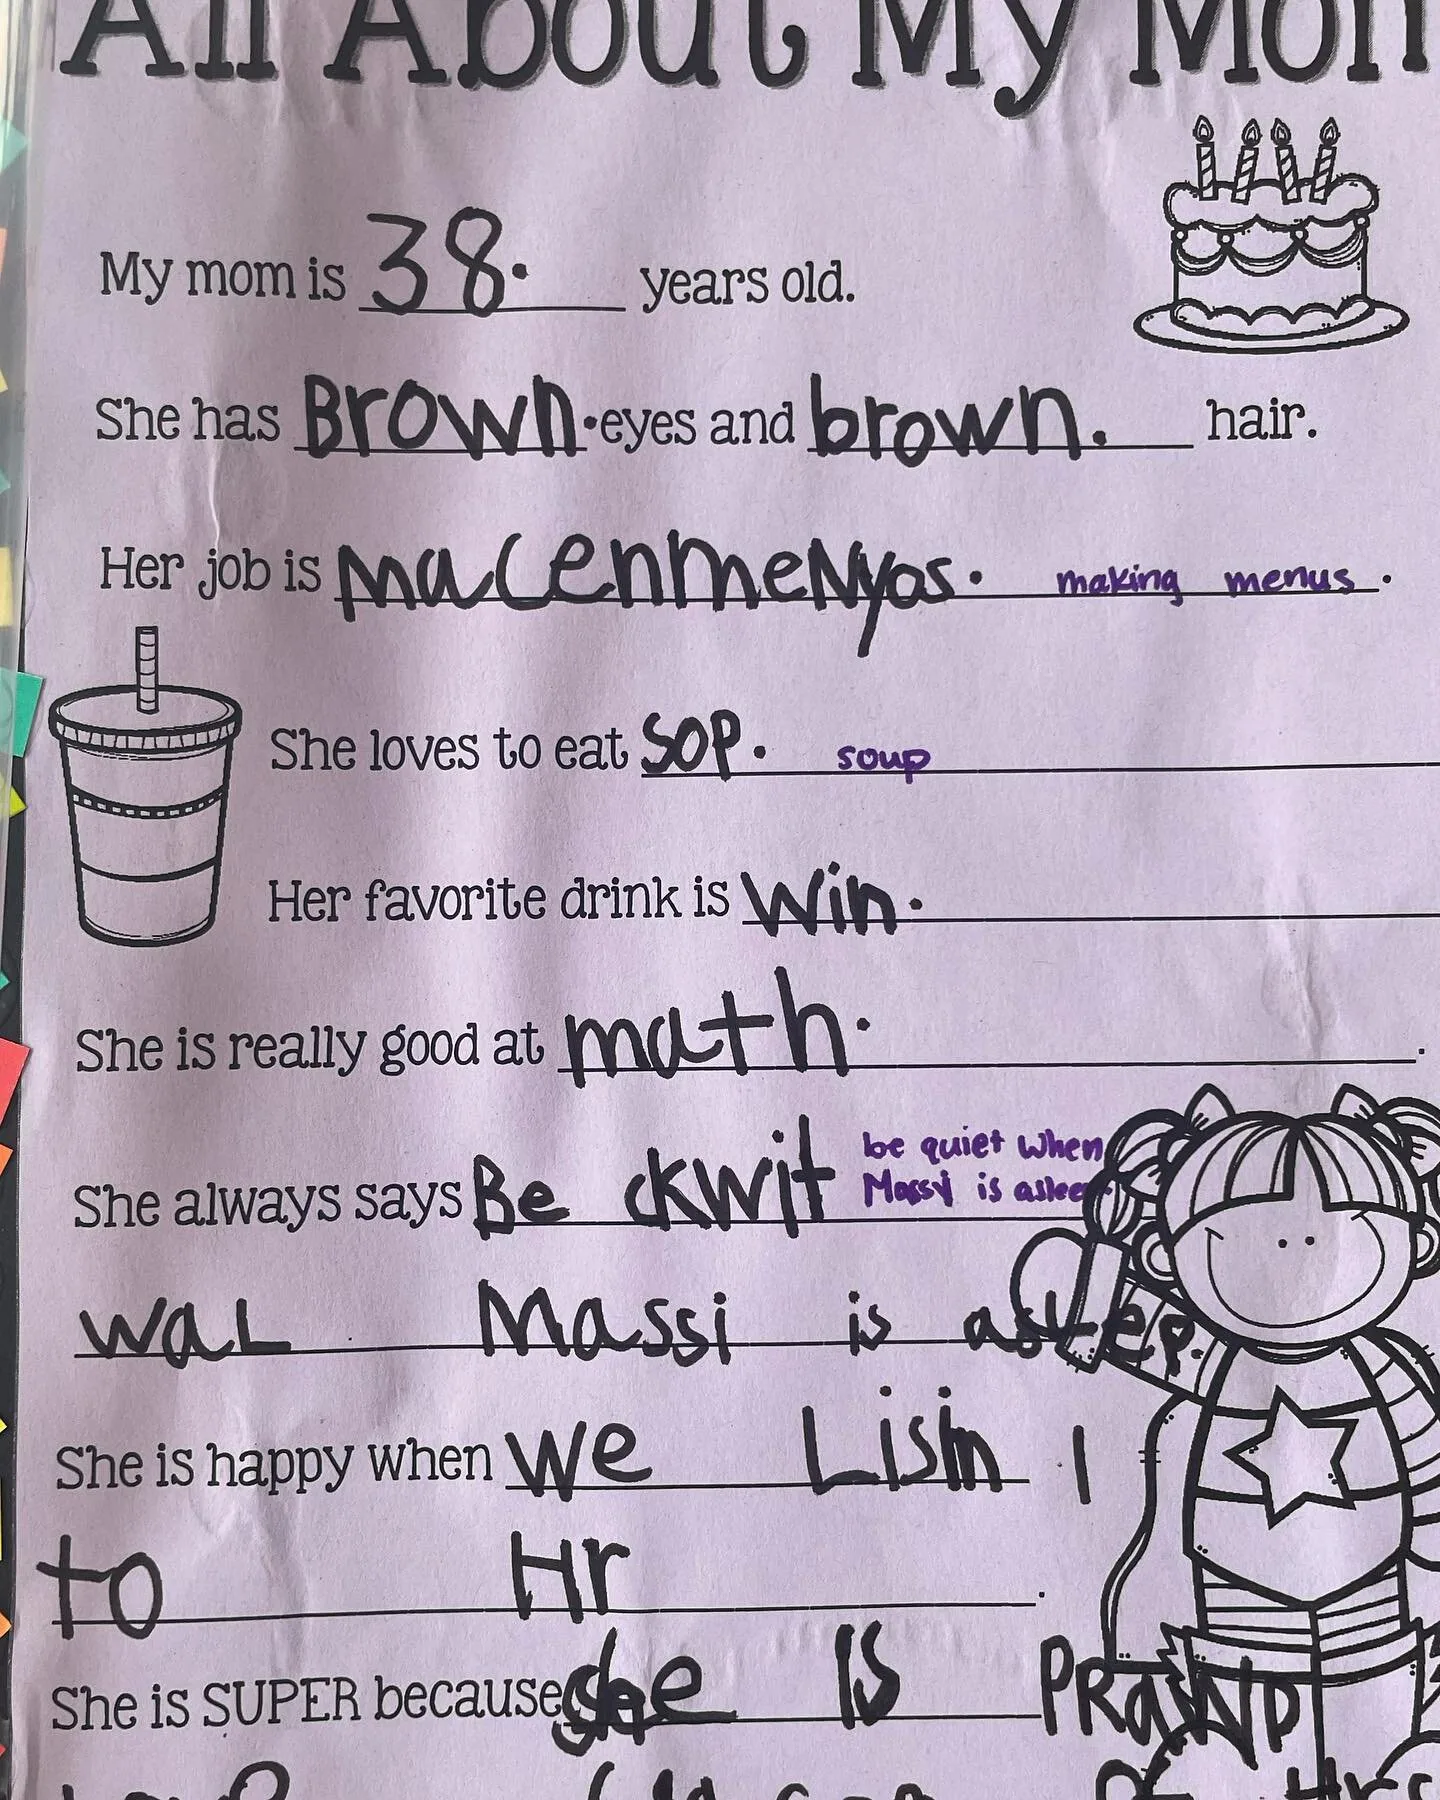 All About My Mom
My mom is 38. years old.
She has Brown. eyes and brown. hair.
Her job is macenmeNyos. making menus.
She loves to eat sop. soup
Her favorite drink is win.
She is really good at math.
She always says Be ckwit be quiet when
Massi is asleep
wal Massi is aslep.
She is happy when we Lisin
to Hr
She is SUPER because she is PRawD